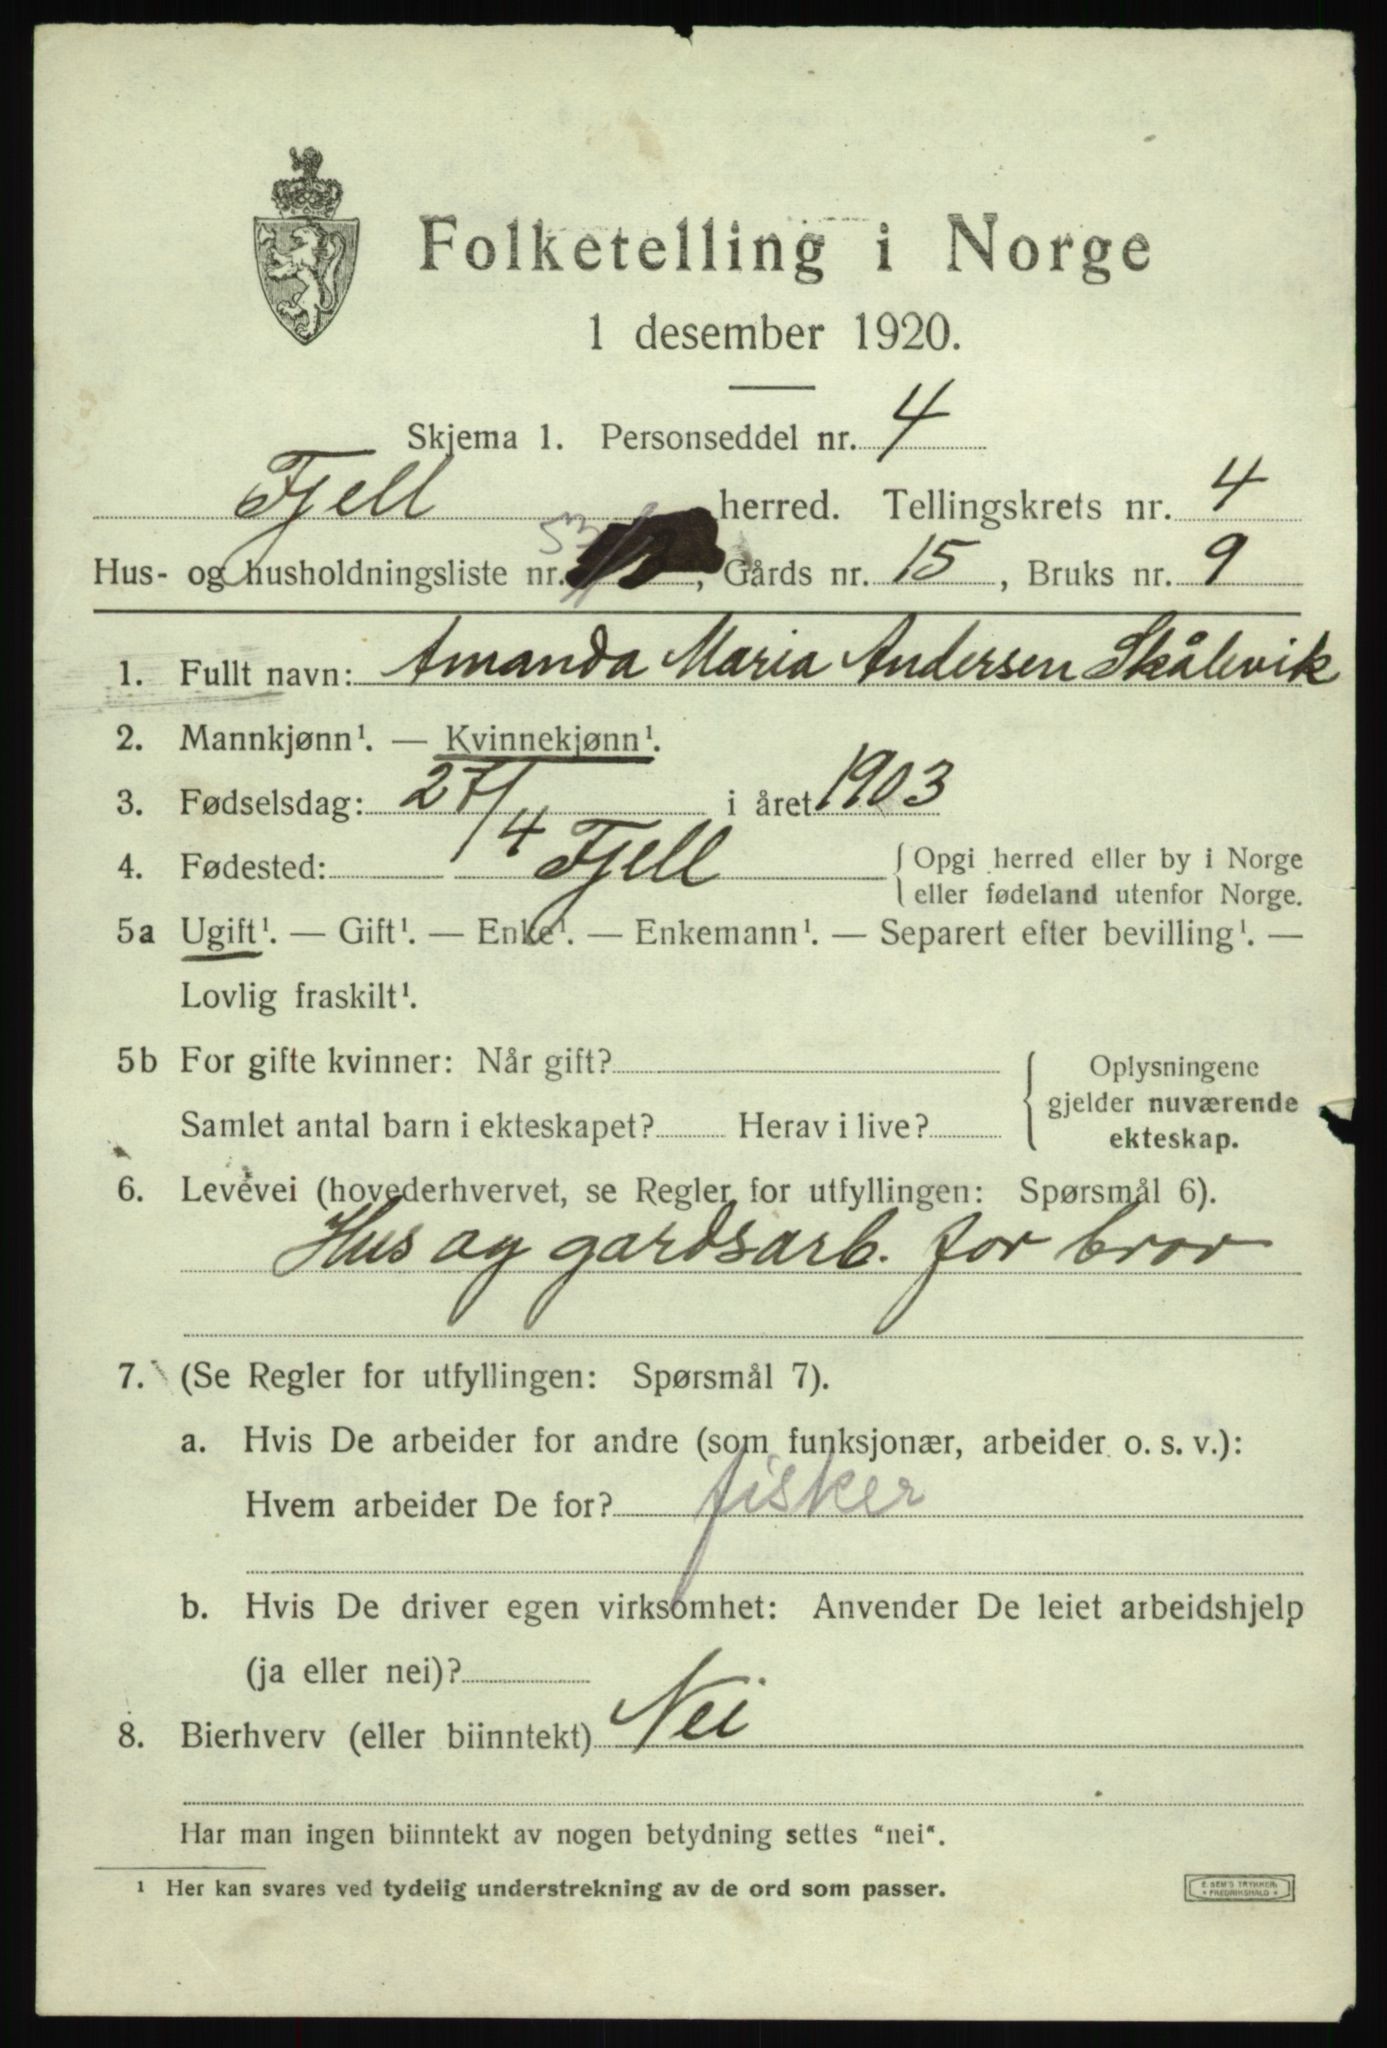 Folketelling i Norge
1 desember 1920.
Skjema 1. Personseddel nr. 4
Fjell herred. Tellingskrets nr. 4
Hus- og husholdningsliste nr. 53, Gårds nr. 15, Bruks nr. 9
1. Fullt navn: Amanda Maria Andersen Skålevik
2. Mannkjønn¹. — Kvinnekjønn¹.
3. Fødselsdag: 27/4 i året 1903
4. Fødested: Fjell { Opgi herred eller by i Norge
eller fødeland utenfor Norge.
5a Ugift¹. — Gift¹. — Enke¹. — Enkemann¹. — Separert efter bevilling¹. —
Lovlig fraskilt¹.
5b For gifte kvinner: Når gift? { Oplysningene
gjelder nuværende
Samlet antal barn i ekteskapet? Herav i live? ekteskap.
6. Levevei (hovederhvervet, se Regler for utfyllingen: Spørsmål 6).
Hus og gardsarb. for bror
7. (Se Regler for utfyllingen: Spørsmål 7).
a. Hvis De arbeider for andre (som funksjonær, arbeider o. s. v.):
Hvem arbeider De for? fisker
b. Hvis De driver egen virksomhet: Anvender De leiet arbeidshjelp
(ja eller nei)?
8. Bierhverv (eller biinntekt) Nei
Har man ingen biinntekt av nogen betydning settes “nei“.
¹ Her kan svares ved tydelig understrekning av de ord som passer.
E. SEM'S TRYKKERI
• FREDRIKSHALD •